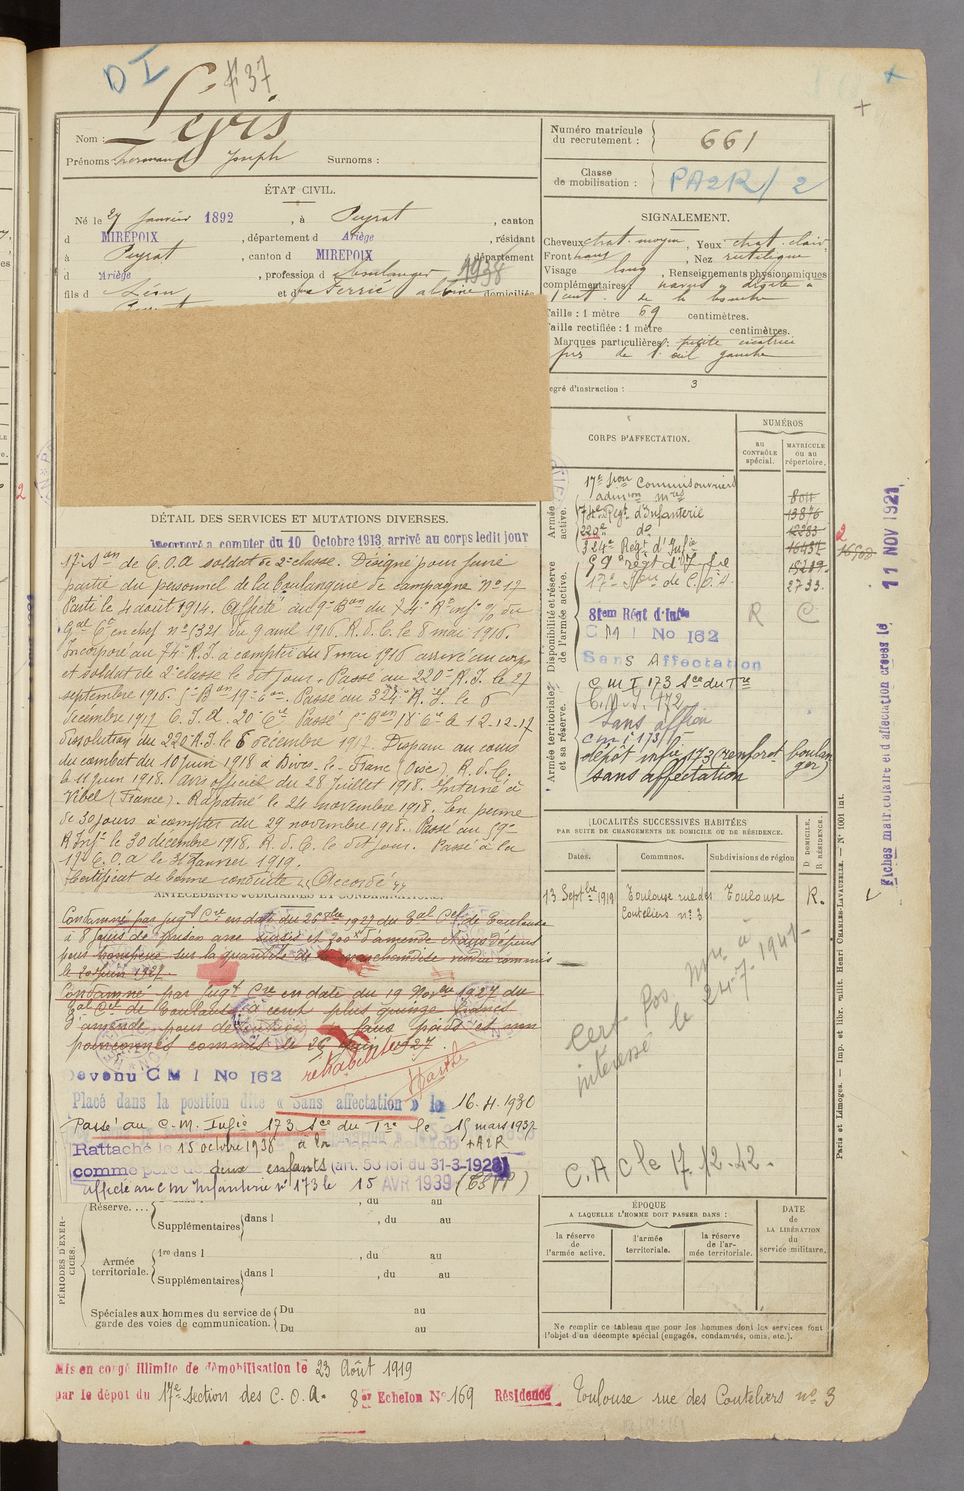 D I
# 37
Nom : Peyris
Prénoms Joseph Surnoms :
ÉTAT CIVIL.
Né le 27 Janvier 1892, à Peyrat, canton
d MIREPOIX, département d Ariège, résidant
à Peyrat, canton d MIREPOIX, département
d Ariège, profession d boulanger 1938
fils d Léon et d Ferrié domiciliés
Numéro matricule
du recrutement : 661
Classe
de mobilisation : PA2R/2
SIGNALEMENT.
Cheveux chat. moyen, Yeux chat. clair
Front haut, Nez rectiligne
Visage long, Renseignements physionomiques
complémentaires :
de la bouche
Taille : 1 mètre 69 centimètres.
Taille rectifiée : 1 mètre centimètres.
Marques particulières : petite cicatrice
près de l'œil gauche
egré d'instruction : 3
CORPS D'AFFECTATION.
NUMÉROS
au
CONTRÔLE
spécial.
MATRICULE
ou au
répertoire.
Armée
active.
17e Son Commis ouvriers
admon mres
74e Regt d'Infanterie
220e do
324e Regt d'Infie
Disponibilité et réserve
de l'armée active.
59e régt d'Infie
17e Son de C.O.A.
2733.
81em Régt d'Infie
R C
C M I No 162
Sans Affectation
Armée territoriale
et sa réserve.
C M I 173 Sce du Tre
C.M.I. 172
Sans affon
C m i 173
dépôt infie 173 (renfort boulanger)
sans affectation
DÉTAIL DES SERVICES ET MUTATIONS DIVERSES.
Incorporé a compter du 10 Octobre 1913, arrivé au corps ledit jour
17e Son de C.O.A soldat de 2e classe. Désigné pour faire
partie du personnel de la boulangerie de campagne No 17
Parti le 4 août 1914. Affecté au 9e Bon du 74e Rt infie % du
Gal Ct en chef no 1321 du 9 avril 1916. R.d.C. le 8 mai 1916.
Incorporé au 74e R.I. à compter du 8 mai 1916 arrivé au corps
et soldat de 2e classe le dit jour. Passé au 220e R.I. le 27
septembre 1916. 5e Bon 19e Cie. Passé au 324e R.I. le 6
décembre 1917 C.I.d. 20e Cie Passé 5e Bon 18e Cie le 12.12.17
dissolution du 220 R.I. le 6 décembre 1917. Disparu au cours
du combat du 10 juin 1918 à Dives-le-Franc (Oise) R.d.C.
le 11 juin 1918. avis officiel du 28 Juillet 1918. Interné à
Vibel (France). Rapatrié le 24 novembre 1918. En perme
de 30 jours à compter du 29 novembre 1918. Passé au 59e
R Infie le 30 décembre 1918. R.d.C. le dit jour. Passé à la
17e C.O.A le 31 Janvier 1919.
Certificat de bonne conduite "Accordé"
ANTÉCÉDENTS JUDICIAIRES ET CONDAMNATIONS.
Condamné par jugt Cre en date du 26 8bre 1927 du Bal Cel de Toulouse
à 8 jours de prison avec sursis et 300 f d'amende
pour tromperie sur la quantité de marchandise vendue commis
le 20 juin 1927.
Condamné par Jugt Cre en date du 19 Novbre 1927 du
Bal Cel de Toulouse à cent plus quinze francs
d'amende pour détention faux poids et non
poinconnés commis le 26 juin 1927.
réhabilité
Devenu C M I No 162
Placé dans la position dite « Sans affectation » le 16.4.1930
Passé au C.M. Infie 173 Sce du Tre le 15 mars 1937
Rattaché le 15 octobre 1938 à la +A2R
comme père de deux enfants (art. 58 loi du 31-3-1928)
affecté au C M Infanterie no 173 le 15 AVR 1939
LOCALITÉS SUCCESSIVES HABITÉES
PAR SUITE DE CHANGEMENTS DE DOMICILE OU DE RÉSIDENCE.
Dates. Communes. Subdivisions de région
D DOMICILE.
R. RÉSIDENCE.
13 Septbre 1919 Toulouse rue des Couteliers no 3 Toulouse R.
Cert Pos Mre a
intéressé le 24-7-1941-
C.A.C le 17.12.42.
PÉRIODES D'EXERCICES.
Réserve....
Supplémentaires dans l , du au
Armée
territoriale.
1re dans l , du au
Supplémentaires dans l , du au
Spéciales aux hommes du service de
garde des voies de communication.
Du au
Du au
ÉPOQUE
A LAQUELLE L'HOMME DOIT PASSER DANS :
la réserve
de
l'armée active.
l'armée
territoriale.
la réserve
de l'ar-
mée territoriale.
DATE
de
LA LIBÉRATION
du
service militaire.
Ne remplir ce tableau que pour les hommes dont les services font
l'objet d'un décompte spécial (engagés, condamnés, omis, etc.).
Mis en congé illimité de démobilisation le 23 Août 1919
par le dépot du 17e section des C.O.A. 8er Echelon No 169 Résidence Toulouse rue des Couteliers no 3
Fiches matriculaire et d'affectation créées le 11 NOV 1921
Paris et Limoges. — Imp. et libr. milit. Henri CHARLES-LAVAUZELLE. — No 1001 int.